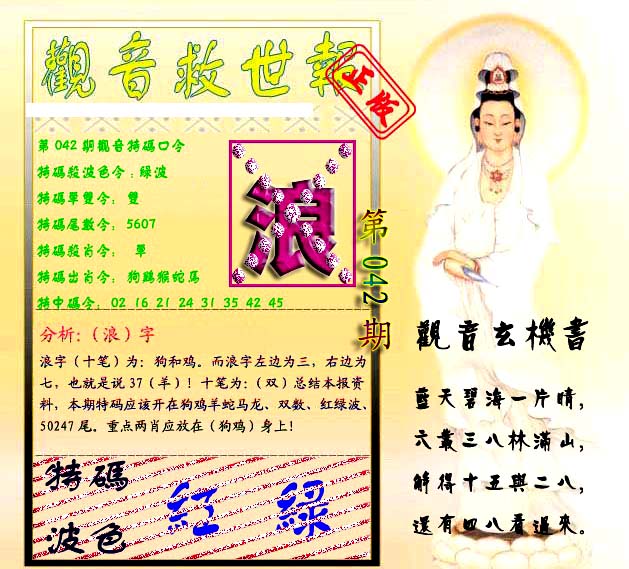 觀音救世報
正版
第042期觀音特碼口令
特碼殺波色令:綠波
特碼單雙令: 雙
特碼尾數令: 5607
特碼殺肖令: 單
特碼出肖令: 狗鷄猴蛇馬
特中碼令: 02 16 21 24 31 35 42 45
浪
第042期
分析:(浪)字
浪字(十笔)为: 狗和鸡。而浪字左边为三, 右边为
七, 也就是说37(羊)! 十笔为:(双)总结本报资
料, 本期特码应该开在狗鸡羊蛇马龙、双数、红绿波、
50247尾。重点两肖应放在(狗鸡)身上!
特碼
波色
紅 綠
觀音玄機書
藍天碧海一片晴,
六叢三八林滿山,
解得十五與二八,
還有四八看過來。